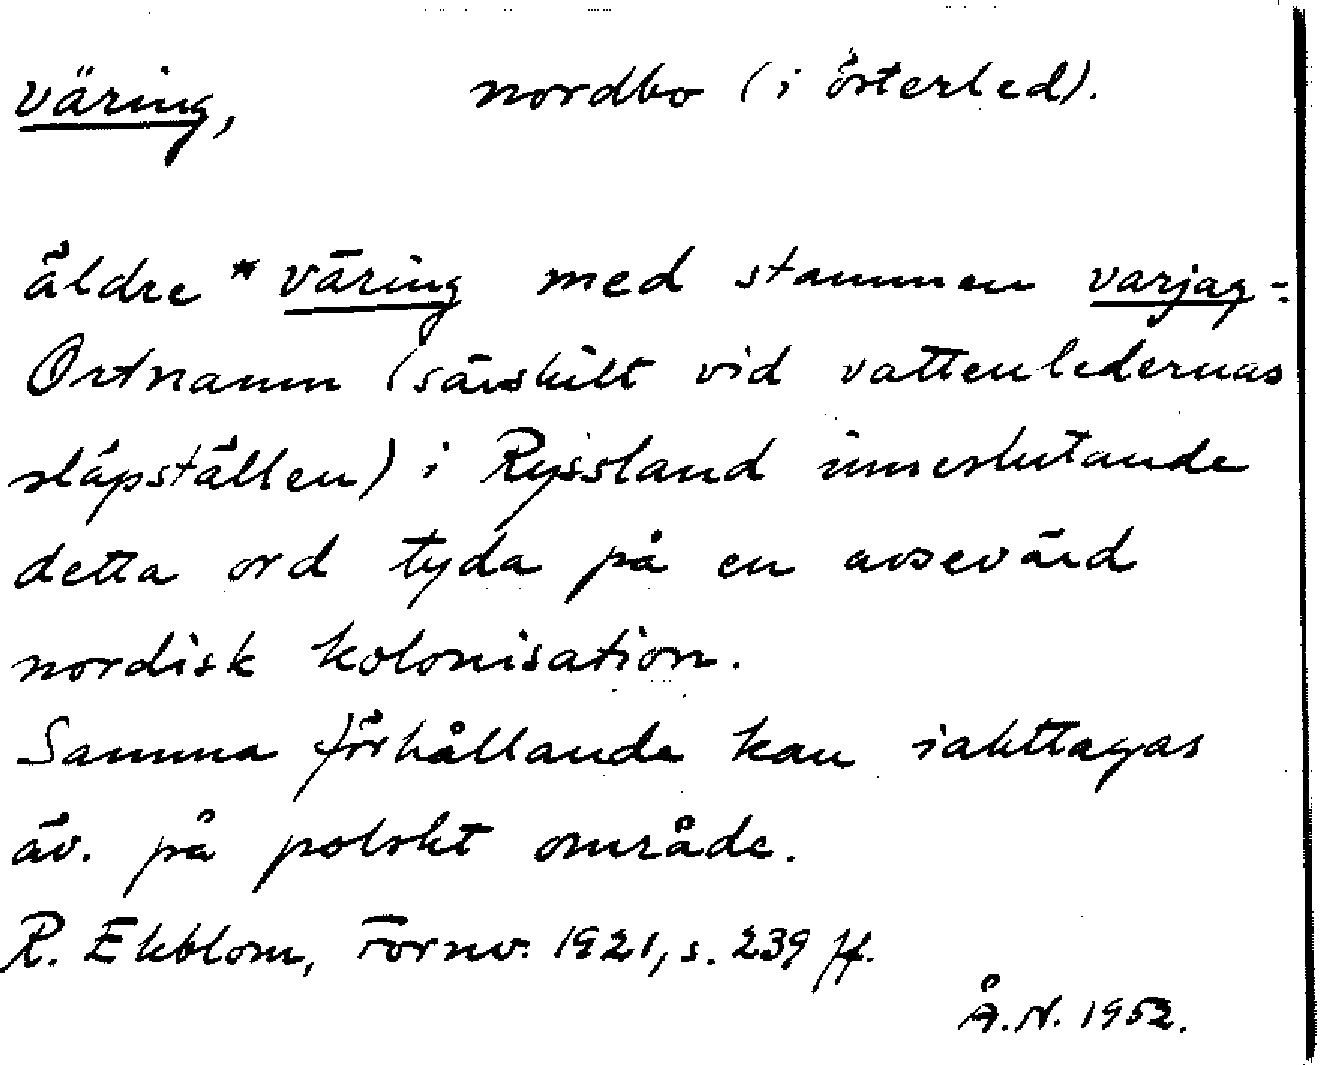 väring, nordbo (i österled).
äldre *väring med stammen varjag-:
Ortnamn (särskilt vid vattenledernas
släpställen) i Ryssland inneslutande
detta ord tyda på en avsevärd
nordisk kolonisation.
Samma förhållande kan iakttagas
äv. på polskt område.
R. Ekblom, Fornv. 1921, s. 239 ff.
Å.N. 1952.